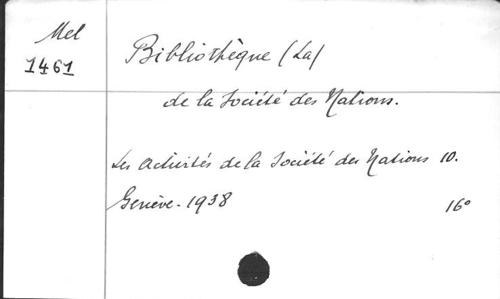 Mel
1461
Bibliothèque (La)
de la Société des Nations.
Les activités de la Société des Nations 10.
Genève - 1938
16°